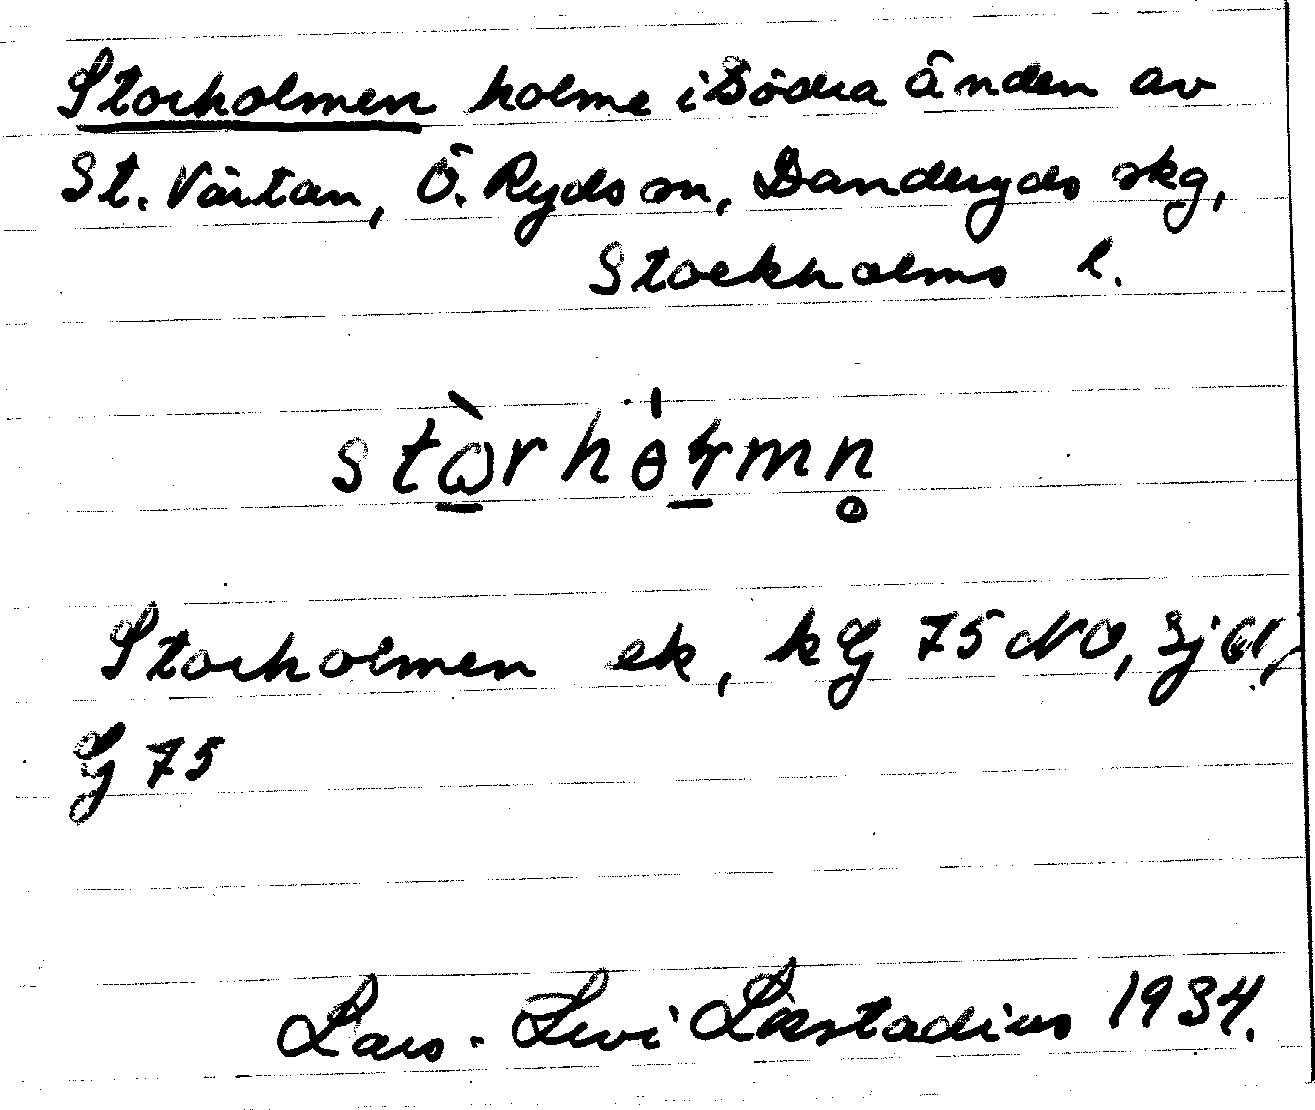 Storholmen holme i södra änden av
St. Värtan, Ö. Ryds sn, Danderyds skg,
Stockholms l.
Storholmen ek, kG 75 NO, Sj 61,
G 75
Lars-Levi Læstadius 1934.